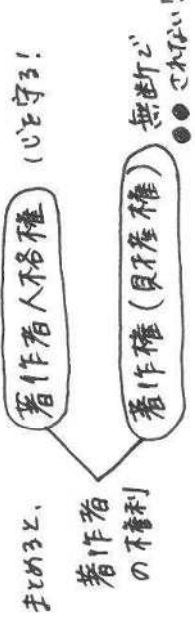 まとめると、
著作者
の権利
著作者人格権
心を守る!
著作権(財産権)
無断で
●●されない!